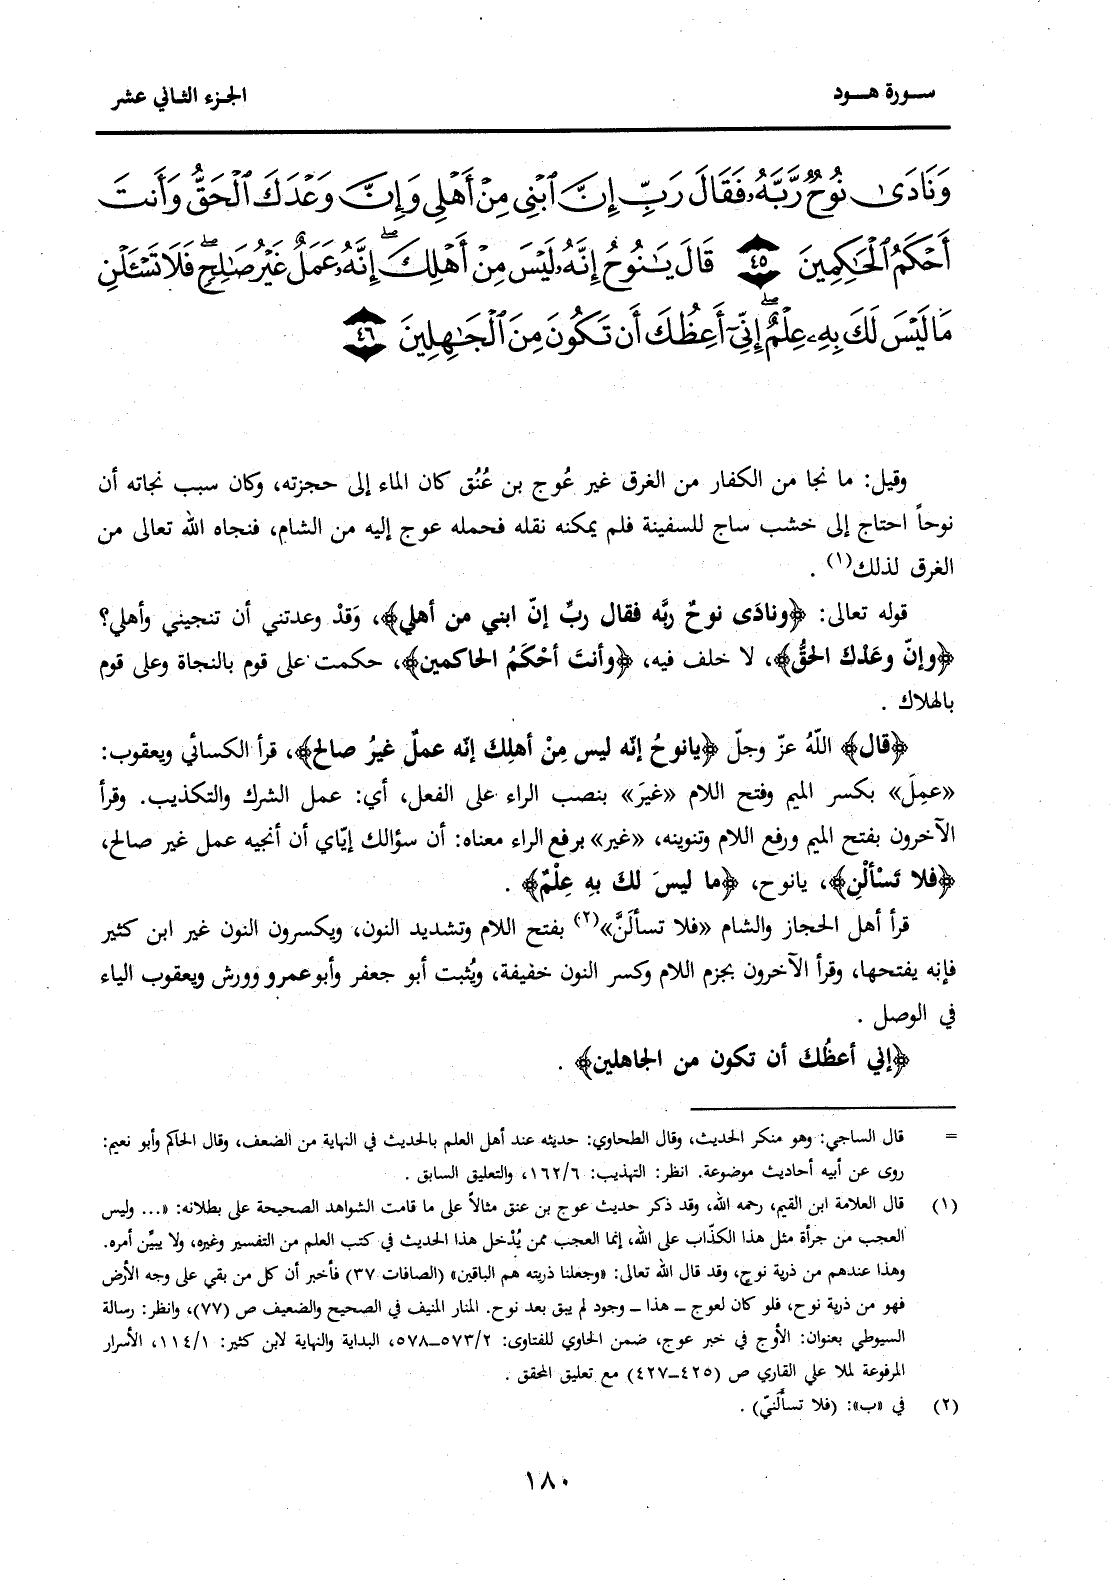 سورة هود
الجزء الثاني عشر
وَنَادَىٰ نُوحٌ رَّبَّهُۥ فَقَالَ رَبِّ إِنَّ ٱبْنِى مِنْ أَهْلِى وَإِنَّ وَعْدَكَ ٱلْحَقُّ وَأَنتَ
أَحْكَمُ ٱلْحَٰكِمِينَ ٤٥ قَالَ يَٰنُوحُ إِنَّهُۥ لَيْسَ مِنْ أَهْلِكَ ۖ إِنَّهُۥ عَمَلٌ غَيْرُ صَٰلِحٍ ۖ فَلَا تَسْـَٔلْنِ
مَا لَيْسَ لَكَ بِهِۦ عِلْمٌ ۖ إِنِّىٓ أَعِظُكَ أَن تَكُونَ مِنَ ٱلْجَٰهِلِينَ ٤٦
وقيل: ما نجا من الكفار من الغرق غير عُوج بن عُنُق كان الماء إلى حجزته، وكان سبب نجاته أن
نوحاً احتاج إلى خشب ساج للسفينة فلم يمكنه نقله فحمله عوج إليه من الشام، فنجاه الله تعالى من
الغرق لذلك(١) .
قوله تعالى: ﴿ونادَى نوحٌ ربَّه فقال ربِّ إنّ ابني من أهلي﴾، وَقدْ وعدتني أن تنجيني وأهلي؟
﴿وإنّ وعَدْكَ الحَقُّ﴾، لا خلف فيه، ﴿وأنتَ أحْكَمُ الحاكمين﴾، حكمت على قوم بالنجاة وعلى قوم
بالهلاك .
﴿قال﴾ اللّهُ عزّ وجلّ ﴿يانوحُ إنّه ليس مِنْ أهلِكَ إنّه عملٌ غيرُ صالح﴾، قرأ الكسائي ويعقوب:
«عمِلَ» بكسر الميم وفتح اللام «غيرَ» بنصب الراء على الفعل، أي: عمل الشرك والتكذيب. وقرأ
الآخرون بفتح الميم ورفع اللام وتنوينه، «غير» برفع الراء معناه: أن سؤالك إيّاي أن أنجيه عمل غير صالح،
﴿فلا تَسْألْنِ﴾، يانوح، ﴿ما ليسَ لكَ بهِ عِلْمٌ﴾ .
قرأ أهل الحجاز والشام «فلا تسألَنَّ»(٢) بفتح اللام وتشديد النون، ويكسرون النون غير ابن كثير
فإنه يفتحها، وقرأ الآخرون بجزم اللام وكسر النون خفيفة، ويُثبت أبو جعفر وأبو عمرو وورش ويعقوب الياء
في الوصل .
﴿إني أعظُكَ أن تكون من الجاهلين﴾ .
= قال الساجي: وهو منكر الحديث، وقال الطحاوي: حديثه عند أهل العلم بالحديث في النهاية من الضعف، وقال الحاكم وأبو نعيم:
روى عن أبيه أحاديث موضوعة. انظر: التهذيب: ١٦٢/٦، والتعليق السابق .
(١) قال العلامة ابن القيم، رحمه الله، وقد ذكر حديث عوج بن عنق مثالاً على ما قامت الشواهد الصحيحة على بطلانه: «... وليس
العجب من جرأة مثل هذا الكذّاب على الله، إنما العجب ممن يُدْخل هذا الحديث في كتب العلم من التفسير وغيره، ولا يبيِّن أمره.
وهذا عندهم من ذرية نوح، وقد قال الله تعالى: «وجعلنا ذريته هم الباقين» (الصافات ٣٧) فأخبر أن كل من بقي على وجه الأرض
فهو من ذرية نوح، فلو كان لعوج ـ هذا ـ وجود لم يبق بعد نوح. المنار المنيف في الصحيح والضعيف ص (٧٧)، وانظر: رسالة
السيوطي بعنوان: الأوج في خبر عوج، ضمن الحاوي للفتاوى: ٥٧٣/٢ـ٥٧٨، البداية والنهاية لابن كثير: ١١٤/١، الأسرار
المرفوعة لملا علي القاري ص (٤٢٥ـ٤٢٧) مع تعليق المحقق .
(٢) في «ب»: (فلا تسألَنيّ) .
١٨٠